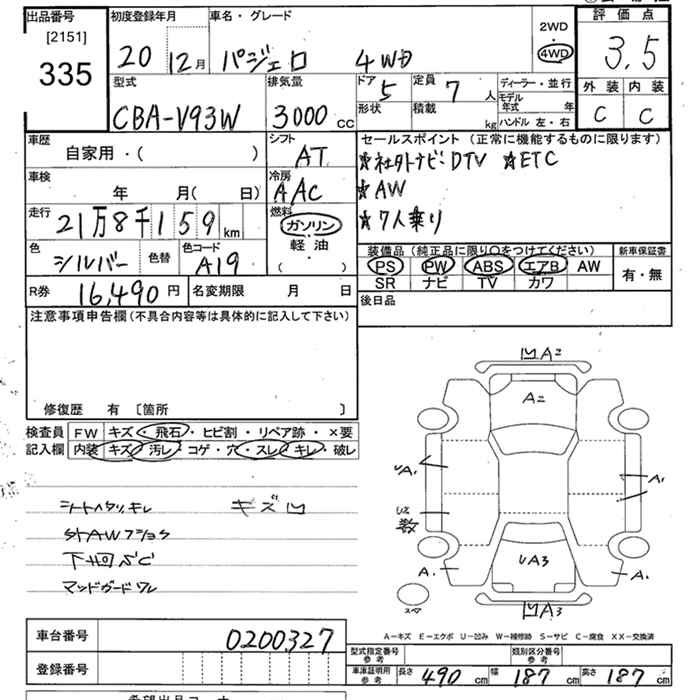 出品番号
[2151]
335
初度登録年月
20 12月
車名・グレード
パジェロ 4WD
2WD
4WD
評価点
3.5
型式
CBA-V93W
排気量
3000 cc
ドア
5
定員
7 人
形状
積載
kg
ディーラー・並行
モデル年式 年
ハンドル 左・右
外装 内装
C C
車歴
自家用・( )
シフト
AT
セールスポイント (正常に機能するものに限ります)
★社外ナビ DTV ★ETC
★AW
★7人乗り
車検
年 月( 日)
冷房
AAC
走行
21万8千159 km
燃料
ガソリン
軽油
( )
色
シルバー
色替
色コード
A19
装備品 (純正品に限り○をつけてください)
PS PW ABS エアB AW
SR ナビ TV カワ
新車保証書
有・無
R券
16,490 円
名変期限 月 日
後日品
注意事項申告欄 (不具合内容等は具体的に記入して下さい)
修復歴 有 〔箇所 〕
検査員
記入欄
FW キズ・飛石・ヒビ割・リペア跡・×要
内装 キズ・汚レ・コゲ・穴・スレ・キレ・破レ
シートヘタリ キレ キズ凹
下回サビ
マッドガードワレ
凹A2
A2
UA1
A1
U2
数
A1
A1
UA3
凹A3
スペア
A－キズ E－エクボ U－凹み W－補修跡 S－サビ C－腐食 XX－交換済
車台番号
0200327
登録番号
型式指定番号
参考
類別区分番号
参考
車庫証明用
参考
長さ 490 cm 幅 187 cm 高さ 187 cm